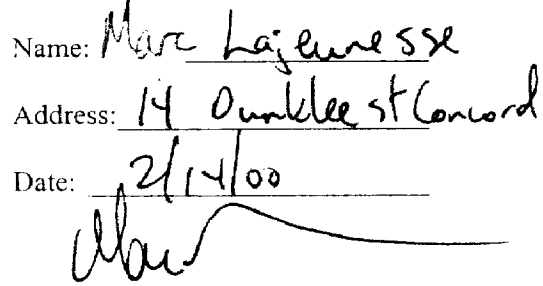 Name: Marc Lajeunesse
Address: 14 Dunklee st Concord
Date: 2/14/00
Marc